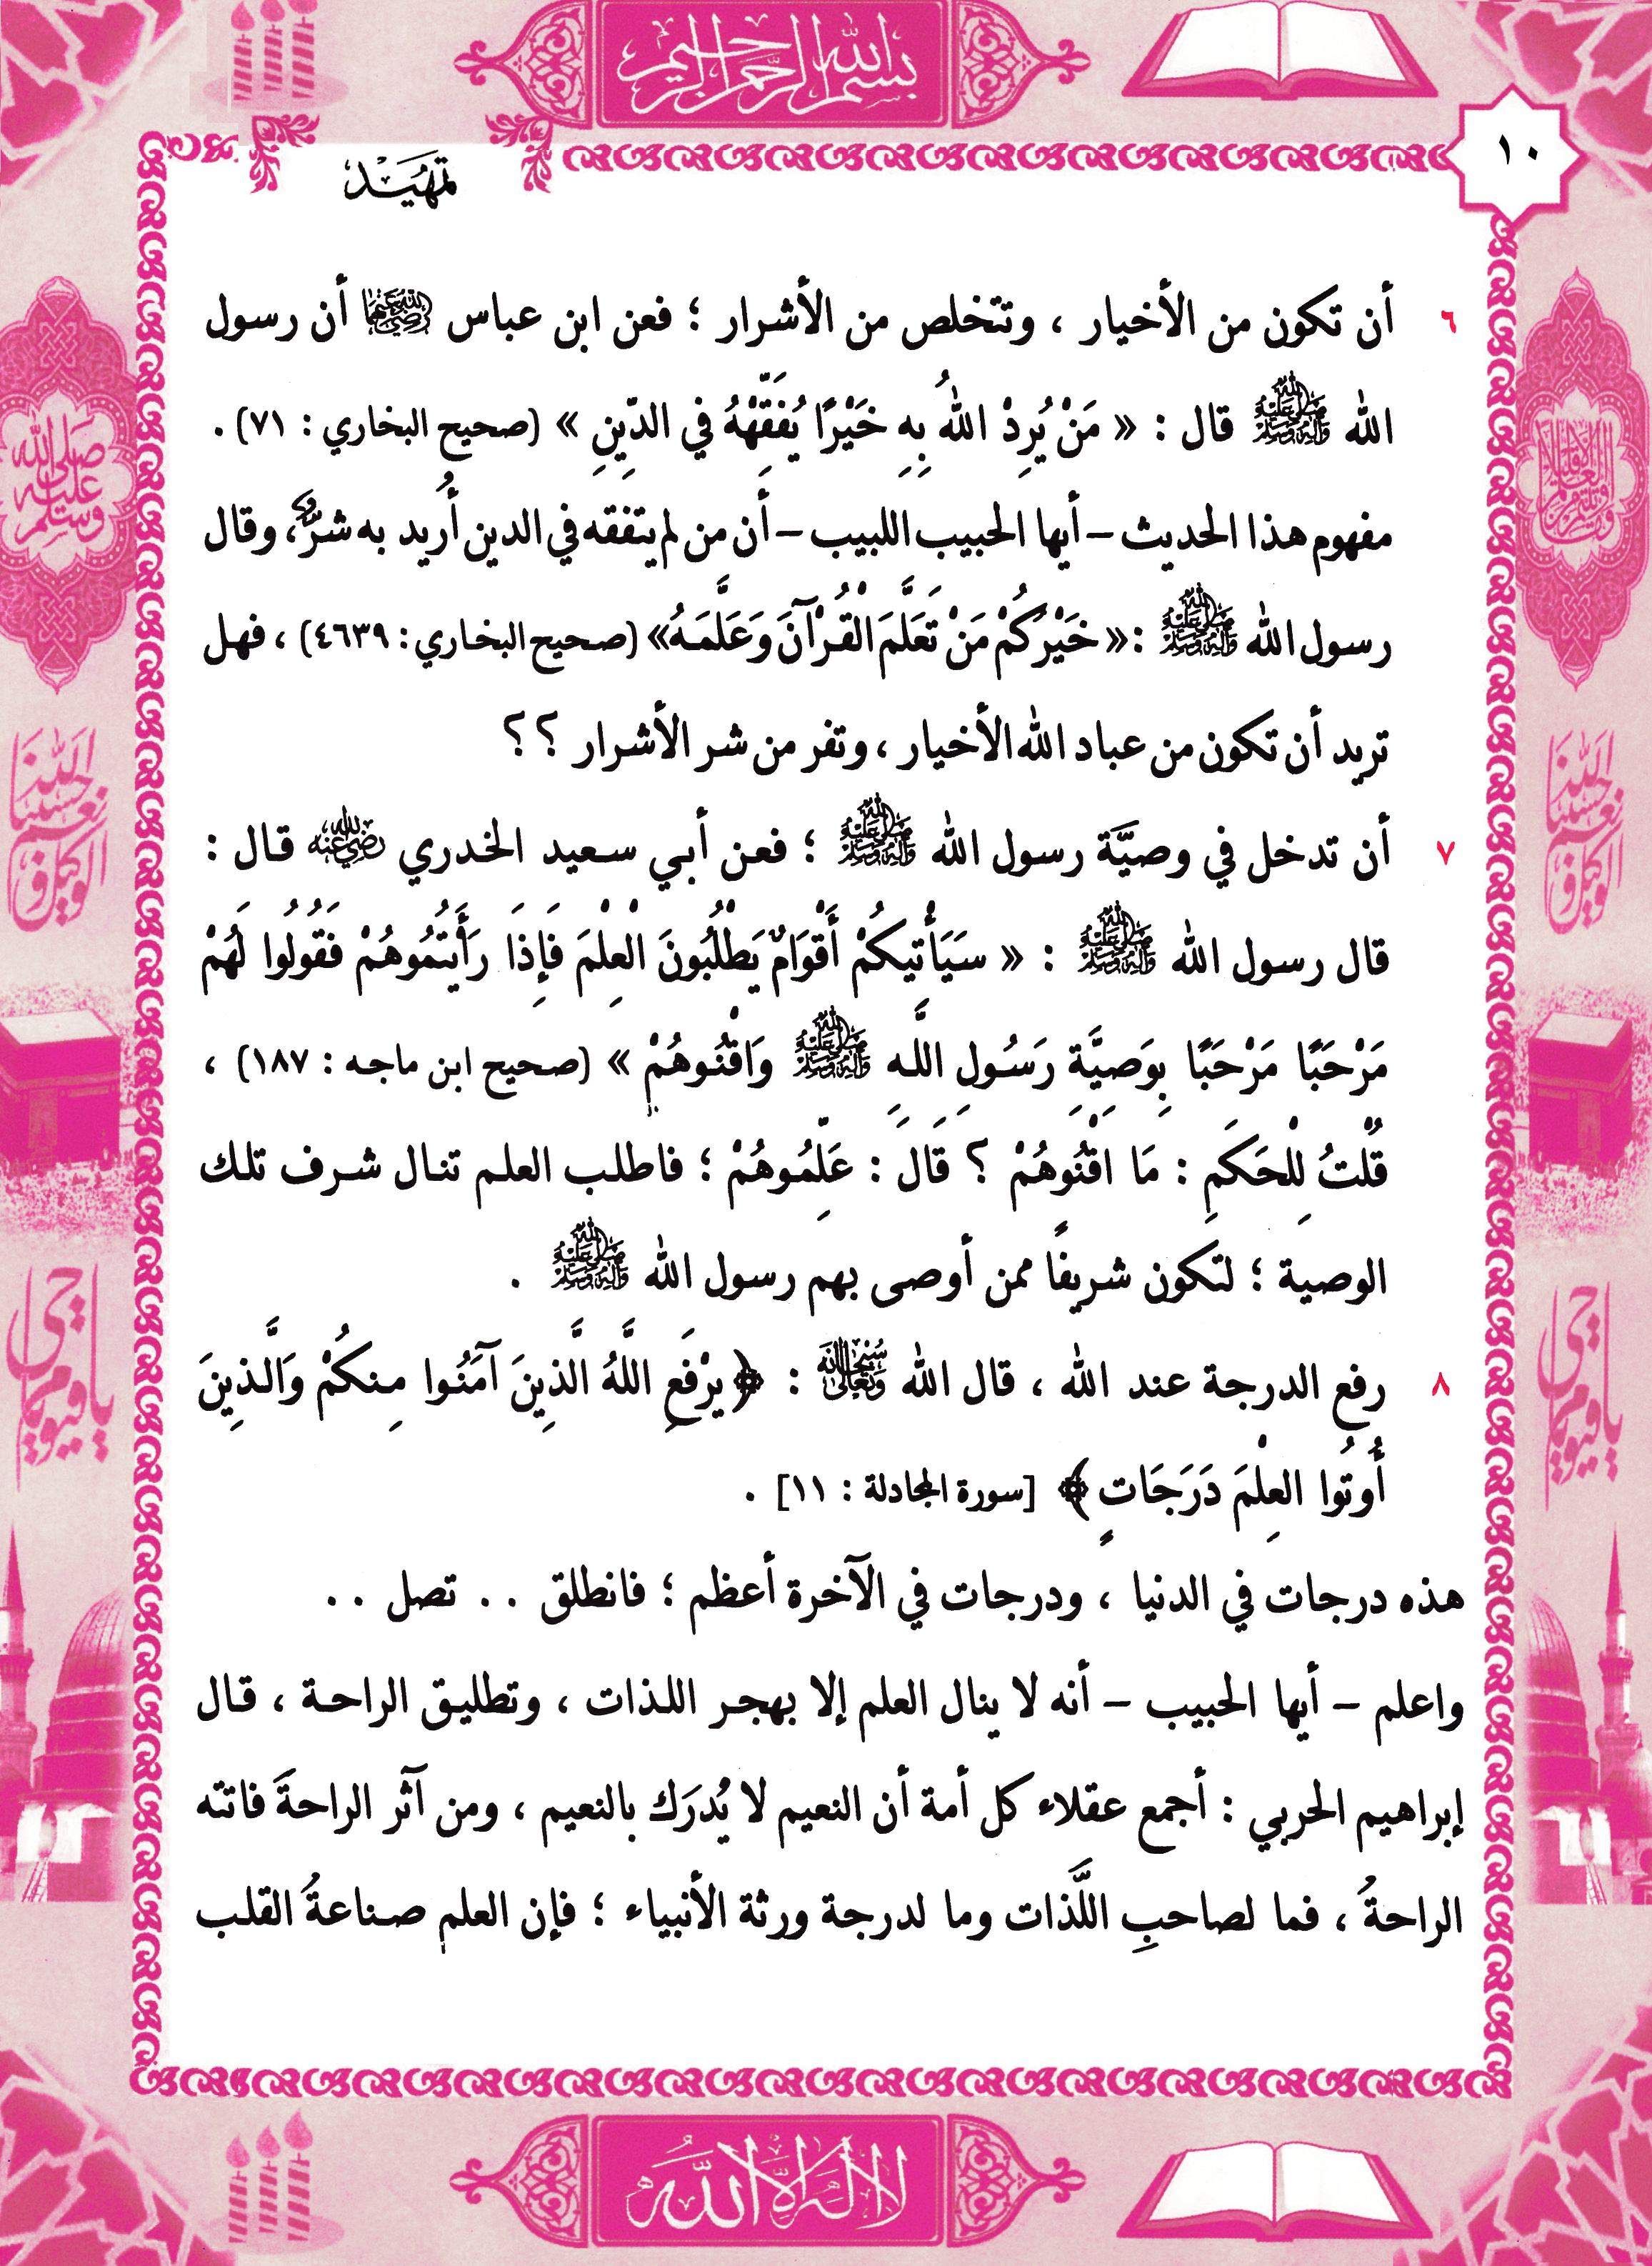 بسم الله الرحمن الرحيم
١٠
تمهيد
٦ أن تكون من الأخيار ، وتتخلص من الأشرار ؛ فعن ابن عباس رضي الله عنهما أن رسول
الله صلى الله عليه وآله وسلم قال : « مَنْ يُرِدْ اللهُ بِهِ خَيْرًا يُفَقِّهْهُ فِي الدِّينِ » (صحيح البخاري : ٧١) .
مفهوم هذا الحديث – أيها الحبيب اللبيب – أن من لم يتفقه في الدين أُريد به شرٌّ، وقال
رسول الله صلى الله عليه وآله وسلم : « خَيْرُكُمْ مَنْ تَعَلَّمَ الْقُرْآنَ وَعَلَّمَهُ» (صحيح البخاري : ٤٦٣٩) ، فهل
تريد أن تكون من عباد الله الأخيار ، وتفر من شر الأشرار ؟؟
٧ أن تدخل في وصيَّة رسول الله صلى الله عليه وآله وسلم ؛ فعن أبي سعيد الخدري رضي الله عنه قال :
قال رسول الله صلى الله عليه وآله وسلم : « سَيَأْتِيكُمْ أَقْوَامٌ يَطْلُبُونَ الْعِلْمَ فَإِذَا رَأَيْتُمُوهُمْ فَقُولُوا لَهُمْ
مَرْحَبًا مَرْحَبًا بِوَصِيَّةِ رَسُولِ اللَّهِ صلى الله عليه وآله وسلم وَاقْنُوهُمْ » (صحيح ابن ماجه : ١٨٧) ،
قُلْتُ لِلْحَكَمِ : مَا اقْنُوهُمْ ؟ قَالَ : عَلِّمُوهُمْ ؛ فاطلب العلم تنال شرف تلك
الوصية ؛ لتكون شريفًا ممن أوصى بهم رسول الله صلى الله عليه وآله وسلم .
٨ رفع الدرجة عند الله ، قال الله سبحانه وتعالى : ﴿ يَرْفَعِ اللَّهُ الَّذِينَ آمَنُوا مِنكُمْ وَالَّذِينَ
أُوتُوا الْعِلْمَ دَرَجَاتٍ ﴾ [سورة المجادلة : ١١] .
هذه درجات في الدنيا ، ودرجات في الآخرة أعظم ؛ فانطلق .. تصل ..
واعلم – أيها الحبيب – أنه لا ينال العلم إلا بهجر اللذات ، وتطليق الراحة ، قال
إبراهيم الحربي : أجمع عقلاء كل أمة أن النعيم لا يُدرَك بالنعيم ، ومن آثر الراحةَ فاتته
الراحةُ ، فما لصاحبِ اللَّذات وما لدرجة ورثة الأنبياء ؛ فإن العلم صناعةُ القلب
صلى الله عليه وسلم
حسبنا الله ونعم الوكيل
حسبنا الله ونعم الوكيل
يا حي يا قيوم
يا حي يا قيوم
لا إله إلا الله